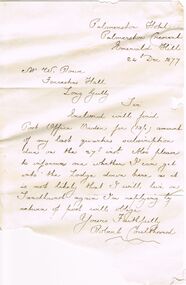 Palmerston Hotel
Palmerston Crescent
Emerald Hill
22 Dec 1879
Mr W. Bowe
Foresters Hall
Long Gully
Sir
Enclosed will find
Post Office Order for
my last quarters subscription
due on the 27th inst. Also please
to inform me whether I can get
into the Lodge down here as it
is not likely that I will live in
Sandhurst again I'm replying by
return of post will oblige
Yours Faithfully
Robert